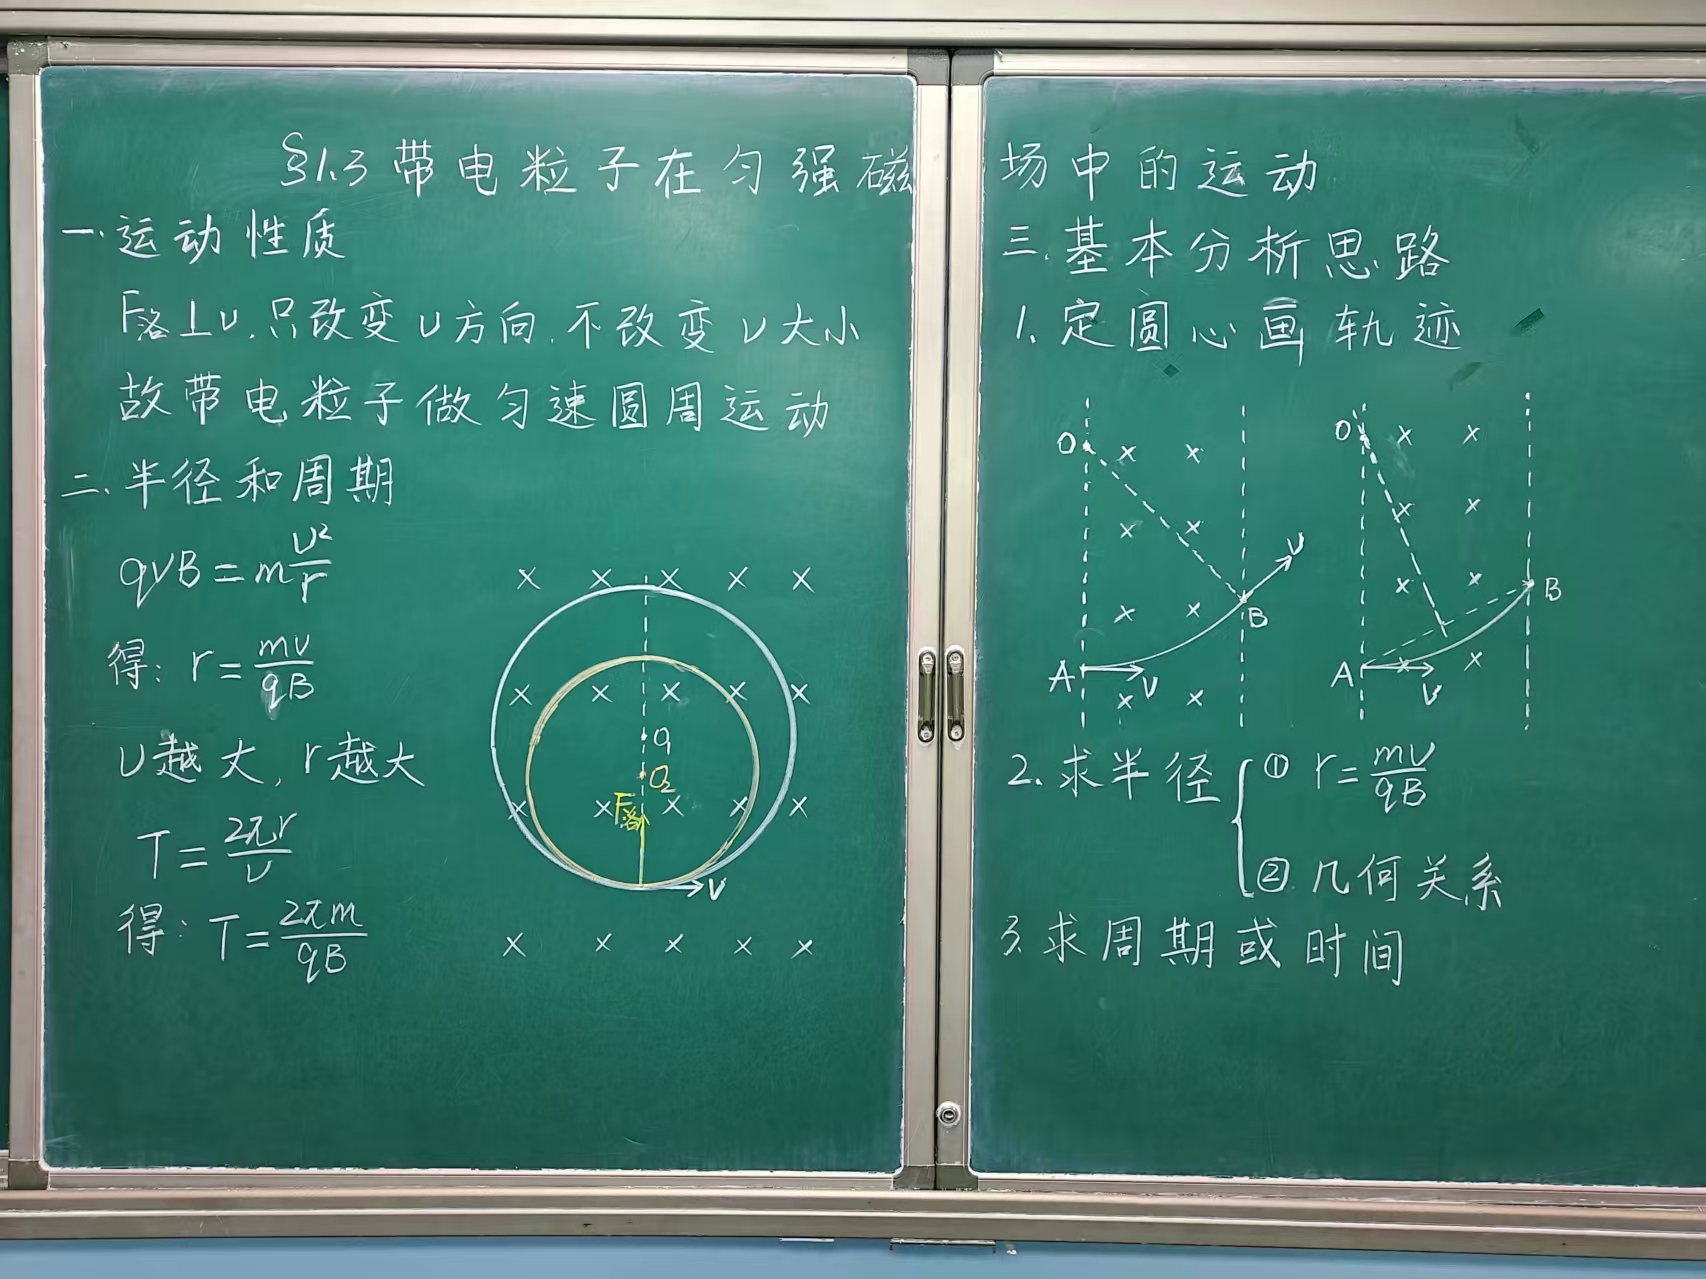 §1.3 带电粒子在匀强磁场中的运动
一.运动性质
F洛⊥v,只改变v方向,不改变v大小
故带电粒子做匀速圆周运动
二.半径和周期
qvB=m\frac{v²}{r}
得: r=\frac{mv}{qB}
v越大, r越大
T=\frac{2πr}{v}
得: T=\frac{2πm}{qB}
× × × × ×
× × × × ×
O₁
O₂
× × × × ×
F洛
v
× × × × ×
三.基本分析思路
1.定圆心画轨迹
O × ×
× ×
v
× × B
A v
× ×
O × ×
× ×
× × B
A × ×
v
2.求半径 { ① r=\frac{mv}{qB}
② 几何关系
3.求周期或时间